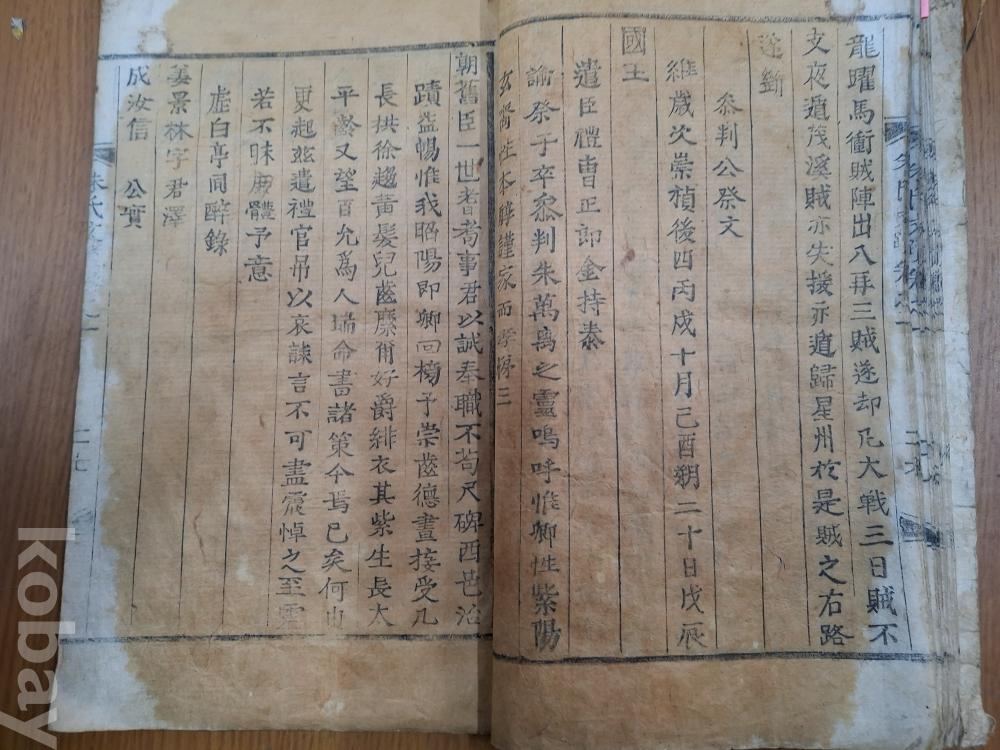 龍曜馬衝賊陣出入再三賊遂却凡大戰三日賊不
支夜遁茂溪賊亦失援亦遁歸星州於是賊之右路
遂斷
叅判公祭文
維歲次崇禎後四丙戌十月己酉朔二十日戊辰
國王
遣臣禮曹正郞金持泰
諭祭于卒叅判朱萬禼之靈嗚呼惟卿性紫陽
朝舊臣一世耆耉事君以誠奉職不苟尺碑西邑治
蹟益暢惟我昭陽卽卿回榜予崇齒德晝接受几
長拱徐趨黃髮兒齒縻爾好爵緋衣其紫生長太
平齡又望百允爲人瑞命書諸策今焉已矣何由
更起玆遣禮官吊以哀誄言不可盡震悼之至靈
若不昧庶體予意
虛白亭同醉錄
姜景林字君澤
成汝信 公實
kobay